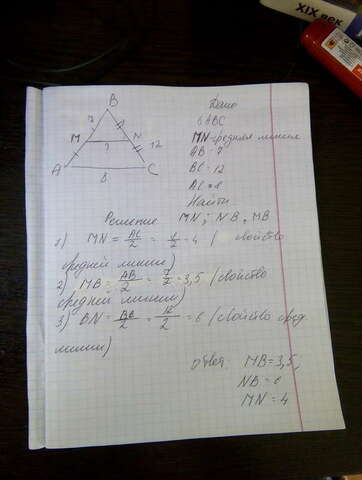 XIX век
B
7
M
N
?
12
A
C
8
Дано
△ABC
MN-средняя линия
AB=7
BC=12
AC=8
Найти
Решение MN; NB, MB
1) MN = AC/2 = 8/2 = 4 / свойство
средней линии)
2) MB = AB/2 = 7/2 = 3,5 / свойство
средней линии)
3) BN = BC/2 = 12/2 = 6 / свойство сред
линии)
ответ: MB=3,5,
NB=6
MN=4